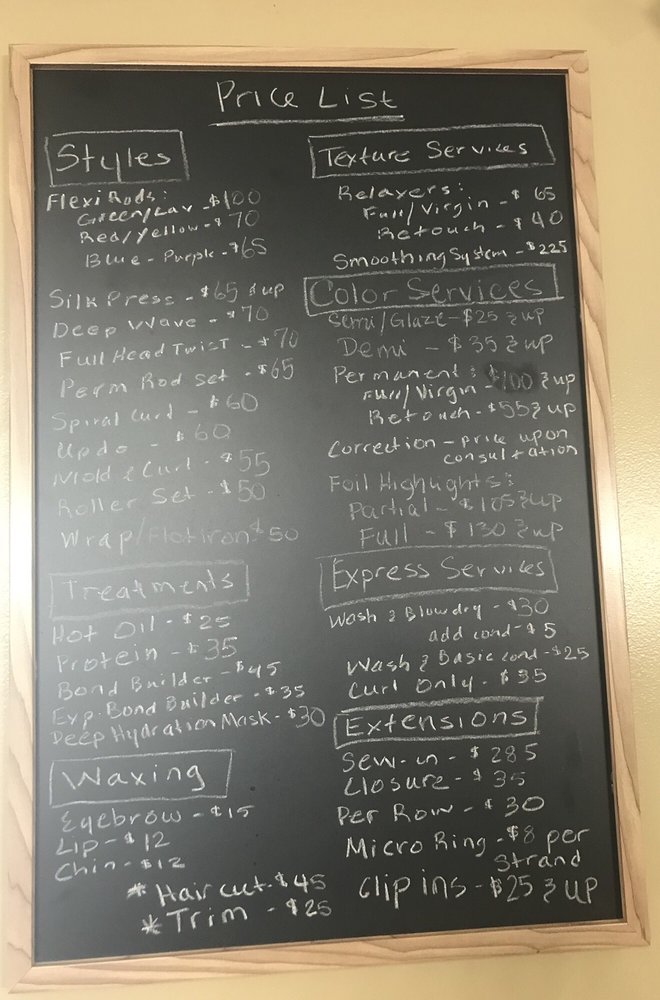 Price List
Styles
Flexi Rods:
Green/Lav - $100
Red/Yellow - $70
Blue - Purple - $65
Silk Press - $65 & up
Deep Wave - $70
Full Head Twist - $70
Perm Rod Set - $65
Spiral Curl - $60
Updo - $60
Mold & Curl - $55
Roller Set - $50
Wrap/Flatiron $50
Treatments
Hot Oil - $25
Protein - $35
Bond Builder - $45
Exp. Bond Builder - $35
Deep Hydration Mask - $30
Waxing
Eyebrow - $15
Lip - $12
Chin - $12
* Haircut - $45
* Trim - $25
Texture Services
Relaxers:
Full/Virgin - $65
Retouch - $40
Smoothing System - $225
Color Services
Semi/Glaze - $25 & up
Demi - $35 & up
Permanent:
Full/Virgin - $100 & up
Retouch - $55 & up
Correction - price upon
consultation
Foil Highlights:
Partial - $105 & up
Full - $130 & up
Express Services
Wash & Blowdry - $30
add cond - $5
Wash & Basic cond - $25
Curl Only - $35
Extensions
Sew-in - $285
Closure - $35
Per Row - $30
Micro Ring - $8 per
strand
Clip ins - $25 & up